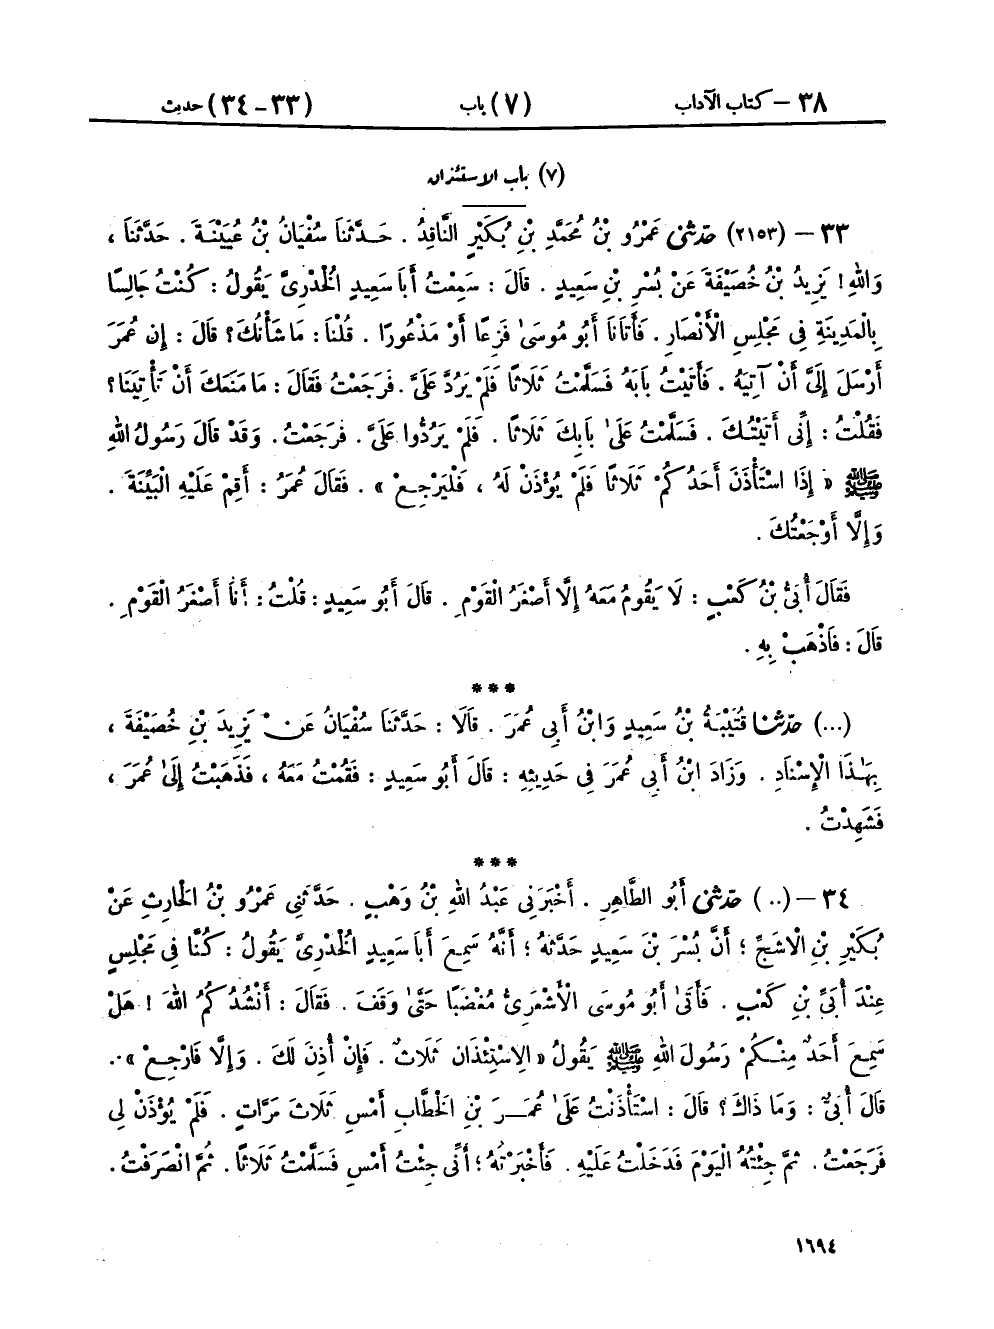 ٣٨ – كتاب الآداب (٧) باب (٣٣ – ٣٤) حديث
(٧) باب الاستئذان
٣٣ – (٢١٥٣) حَدَّثَنِي عَمْرُو بْنُ مُحَمَّدِ بْنِ بُكَيْرٍ النَّاقِدُ . حَدَّثَنَا سُفْيَانُ بْنُ عُيَيْنَةَ . حَدَّثَنَا ،
وَاللهِ ! يَزِيدُ بْنُ خُصَيْفَةَ عَنْ بُسْرِ بْنِ سَعِيدٍ . قَالَ : سَمِعْتُ أَبَا سَعِيدٍ الْخُدْرِيَّ يَقُولُ : كُنْتُ جَالِسًا
بِالْمَدِينَةِ فِي مَجْلِسِ الْأَنْصَارِ . فَأَتَانَا أَبُو مُوسَىٰ فَزِعًا أَوْ مَذْعُورًا . قُلْنَا : مَا شَأْنُكَ ؟ قَالَ : إِن عُمَرَ
أَرْسَلَ إِلَيَّ أَنْ آتِيَهُ . فَأَتَيْتُ بَابَهُ فَسَلَّمْتُ ثَلَاثًا فَلَمْ يَرُدَّ عَلَيَّ . فَرَجَعْتُ فَقَالَ : مَا مَنَعَكَ أَنْ تَأْتِيَنَا ؟
فَقُلْتُ : إِنِّي أَتَيْتُكَ . فَسَلَّمْتُ عَلَىٰ بَابِكَ ثَلَاثًا . فَلَمْ يَرُدُّوا عَلَيَّ . فَرَجَعْتُ . وَقَدْ قَالَ رَسُولُ اللهِ
ﷺ « إِذَا اسْتَأْذَنَ أَحَدُكُمْ ثَلَاثًا فَلَمْ يُؤْذَنْ لَهُ ، فَلْيَرْجِعْ » . فَقَالَ عُمَرُ : أَقِمْ عَلَيْهِ الْبَيِّنَةَ .
وَإِلَّا أَوْجَعْتُكَ .
فَقَالَ أُبَيُّ بْنُ كَعْبٍ : لَا يَقُومُ مَعَهُ إِلَّا أَصْغَرُ الْقَوْمِ . قَالَ أَبُو سَعِيدٍ : قُلْتُ : أَنَا أَصْغَرُ الْقَوْمِ .
قَالَ : فَاذْهَبْ بِهِ .
***
(...) حَدَّثَنَا قُتَيْبَةُ بْنُ سَعِيدٍ وَابْنُ أَبِي عُمَرَ . قَالَا : حَدَّثَنَا سُفْيَانُ عَنْ يَزِيدَ بْنِ خُصَيْفَةَ ،
بِهَٰذَا الْإِسْنَادِ . وَزَادَ ابْنُ أَبِي عُمَرَ فِي حَدِيثِهِ : قَالَ أَبُو سَعِيدٍ : فَقُمْتُ مَعَهُ ، فَذَهَبْتُ إِلَىٰ عُمَرَ ،
فَشَهِدْتُ .
***
٣٤ – (..) حَدَّثَنِي أَبُو الطَّاهِرِ . أَخْبَرَنِي عَبْدُ اللهِ بْنُ وَهْبٍ . حَدَّثَنِي عَمْرُو بْنُ الْحَارِثِ عَنْ
بُكَيْرِ بْنِ الْاشَجِّ ؛ أَنَّ بُسْرَ بْنَ سَعِيدٍ حَدَّثَهُ ؛ أَنَّهُ سَمِعَ أَبَا سَعِيدٍ الْخُدْرِيَّ يَقُولُ : كُنَّا فِي مَجْلِسٍ
عِنْدَ أُبَيِّ بْنِ كَعْبٍ . فَأَتَىٰ أَبُو مُوسَى الْأَشْعَرِيُّ مُغْضَبًا حَتَّىٰ وَقَفَ . فَقَالَ : أَنْشُدُكُمُ اللهَ ! هَلْ
سَمِعَ أَحَدٌ مِنْكُمْ رَسُولَ اللهِ ﷺ يَقُولُ « الِاسْتِئْذَان ثَلَاثٌ . فَإِنْ أُذِنَ لَكَ . وَإِلَّا فَارْجِعْ » .
قَالَ أُبَيٌّ : وَمَا ذَاكَ ؟ قَالَ : اسْتَأْذَنْتُ عَلَىٰ عُمَرَ بْنِ الْخَطَّابِ أَمْسِ ثَلَاثَ مَرَّاتٍ . فَلَمْ يُؤْذَنْ لِي
فَرَجَعْتُ . ثُمَّ جِئْتُهُ الْيَوْمَ فَدَخَلْتُ عَلَيْهِ . فَأَخْبَرْتُهُ ؛ أَنِّي جِئْتُ أَمْسِ فَسَلَّمْتُ ثَلَاثًا . ثُمَّ انْصَرَفْتُ .
١٦٩٤